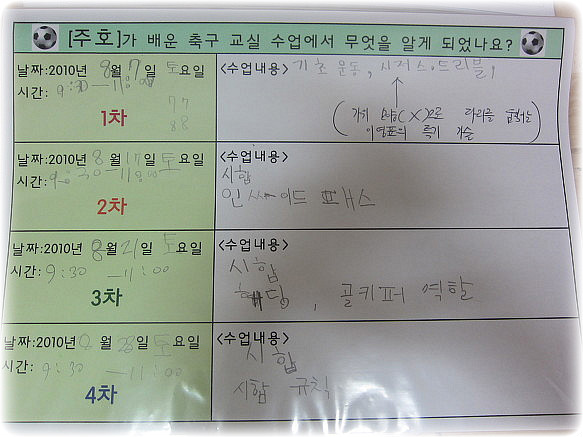 [주호]가 배운 축구 교실 수업에서 무엇을 알게 되었나요?
날짜:2010년 8월 7일 토요일
시간: 9:30 — 11:00
77
88
1차
<수업내용> 기초 운동, 시저스·드리블,
(가위 모양(X)으로 다리를
이영표의 특기 기술)
날짜:2010년 8월 일 토요일
시간: 9:30 — 11:00
2차
<수업내용>
시합
인싸이드 패스
날짜:2010년 8월 21일 토요일
시간: 9:30 — 11:00
3차
<수업내용>
시합
헤딩, 골키퍼 역할
날짜:2010년 8월 28일 토요일
시간: 9:30 — 11:00
4차
<수업내용>
시합
시합 규칙